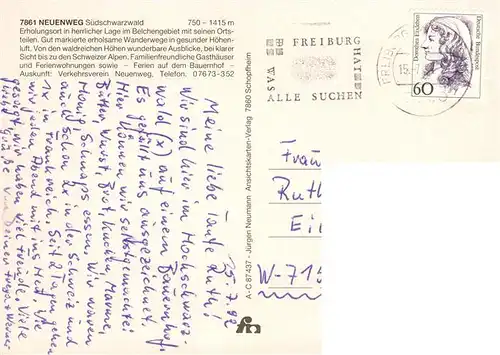 7861 NEUENWEG Südschwarzwald 750 – 1415 m
Erholungsort in herrlicher Lage im Belchengebiet mit seinen Orts-
teilen. Gut markierte erholsame Wanderwege in gesunder Höhen-
luft. Von den waldreichen Höhen wunderbare Ausblicke, bei klarer
Sicht bis zu den Schweizer Alpen. Familienfreundliche Gasthäuser
und Ferienwohnungen sowie – Ferien auf dem Bauernhof –
Auskunft: Verkehrsverein Neuenweg, Telefon. 07673-352
15.7.92
Meine liebe Tante Ruth!
Wir sind hier im Hochschwarz-
wald (x) auf einem Bauernhof.
Es gefällt uns ausgezeichnet.
Hier können wir selbstgemachte
Butter, Wurst, Brot, Kuchen, Marme,
Honig, Schnaps essen. Wir waren
auch schon 2x in der Schweiz und
1x in Frankreich. Seit 2 Tagen gehen
wir jeden Abend mit ins Heu. Wie
gesagt wir haben viel Freude. Viele
liebe Grüße von Deinen Werner
A-C 87437 - Jürgen Neumann Ansichtskarten-Verlag 7860 Schopfheim
FREIBURG
HAT
WAS
ALLE SUCHEN
FREIBURG
15.
Dorothea Erxleben
Deutsche Bundespost
60
Frau
Ruth
Ei
W-715